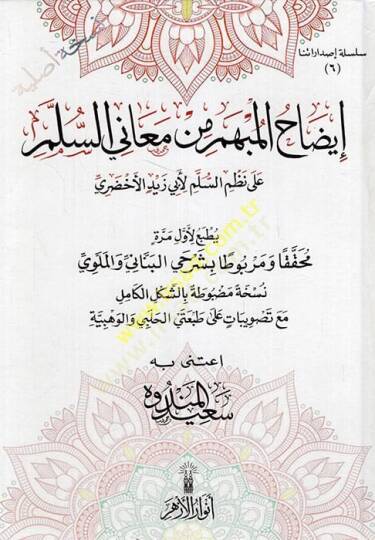 نسخة أصلية
سلسلة إصداراتنا
(٦)
إيضاح المبهم من معاني السلم
على نظم السلم لأبي زيد الأخضري
يطبع لأول مرة
محققًا ومربوطًا بشرحي البناني والملوي
نسخة مضبوطة بالشكل الكامل
مع تصويبات على طبعتي الحلبي والوهبية
اعتنى به
سعيد المندوه
أنوار الأزهر